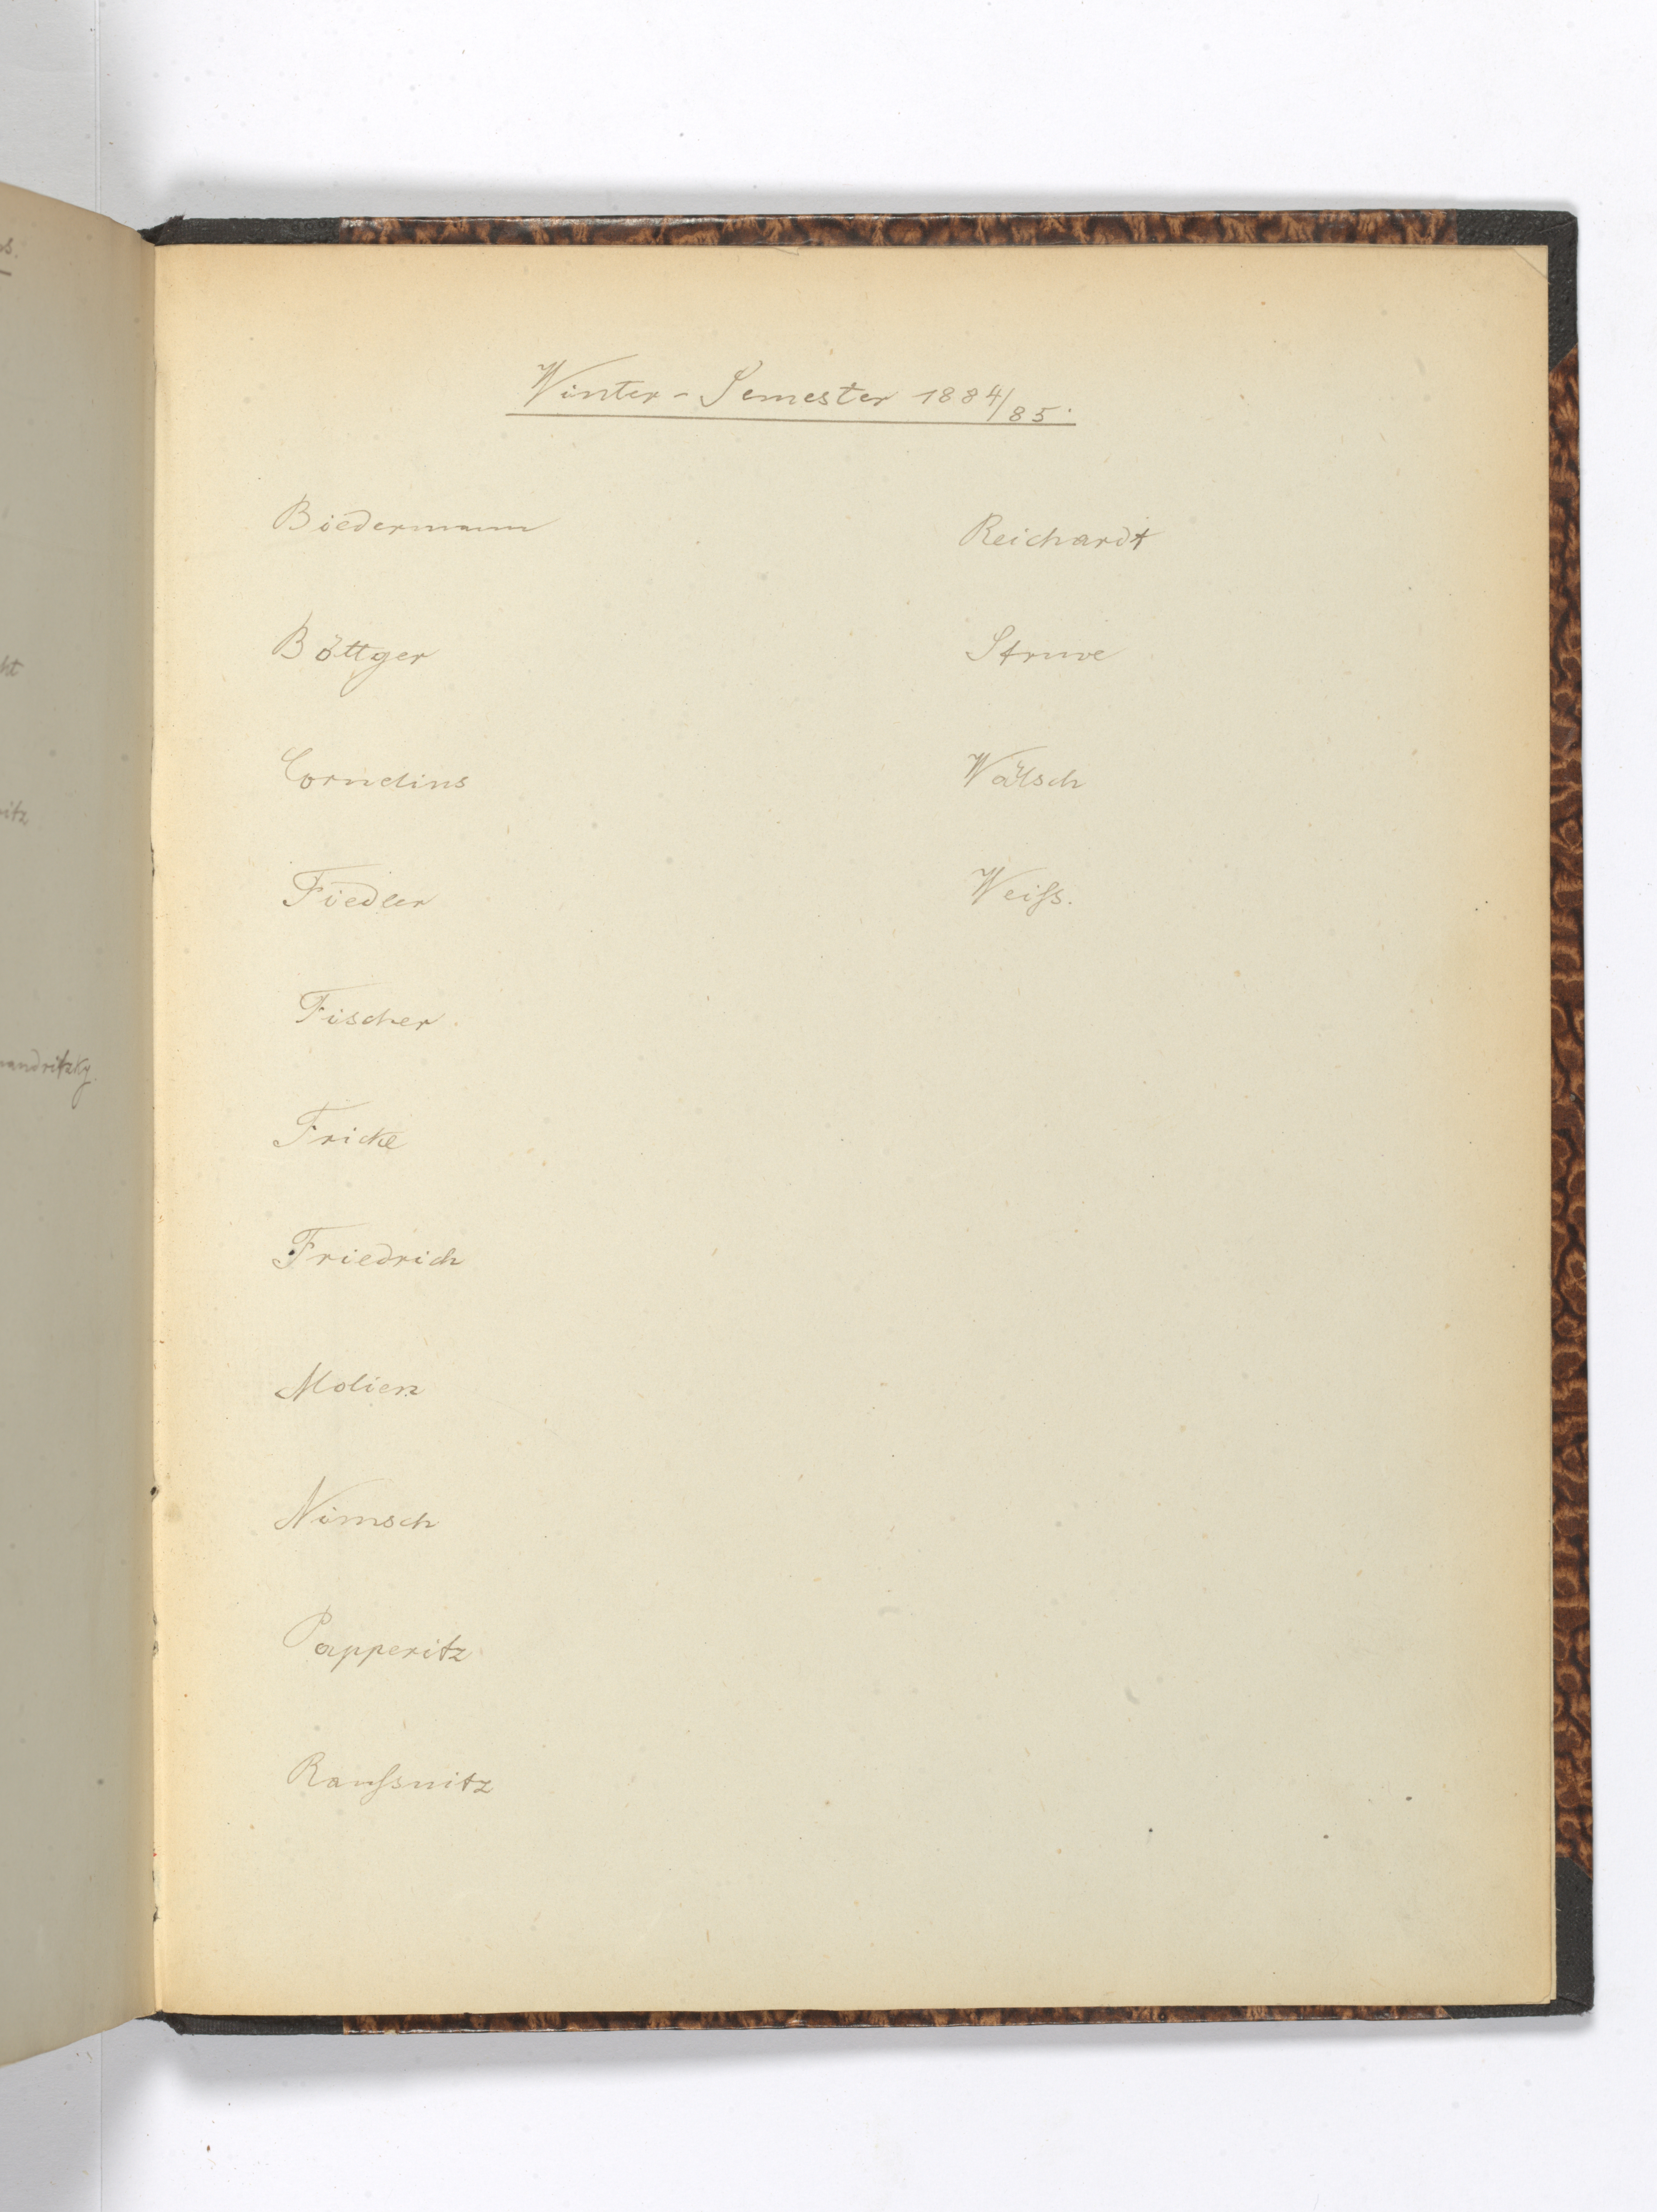 Winter-Semester 1884/85.
Biedermann
Böttger
Cornelius
Fiedler
Fischer
Fricke
Friedrich
Molien
Nimsch
Papperitz
Raußnitz
Reichardt
Struve
Wälsch
Weiß.